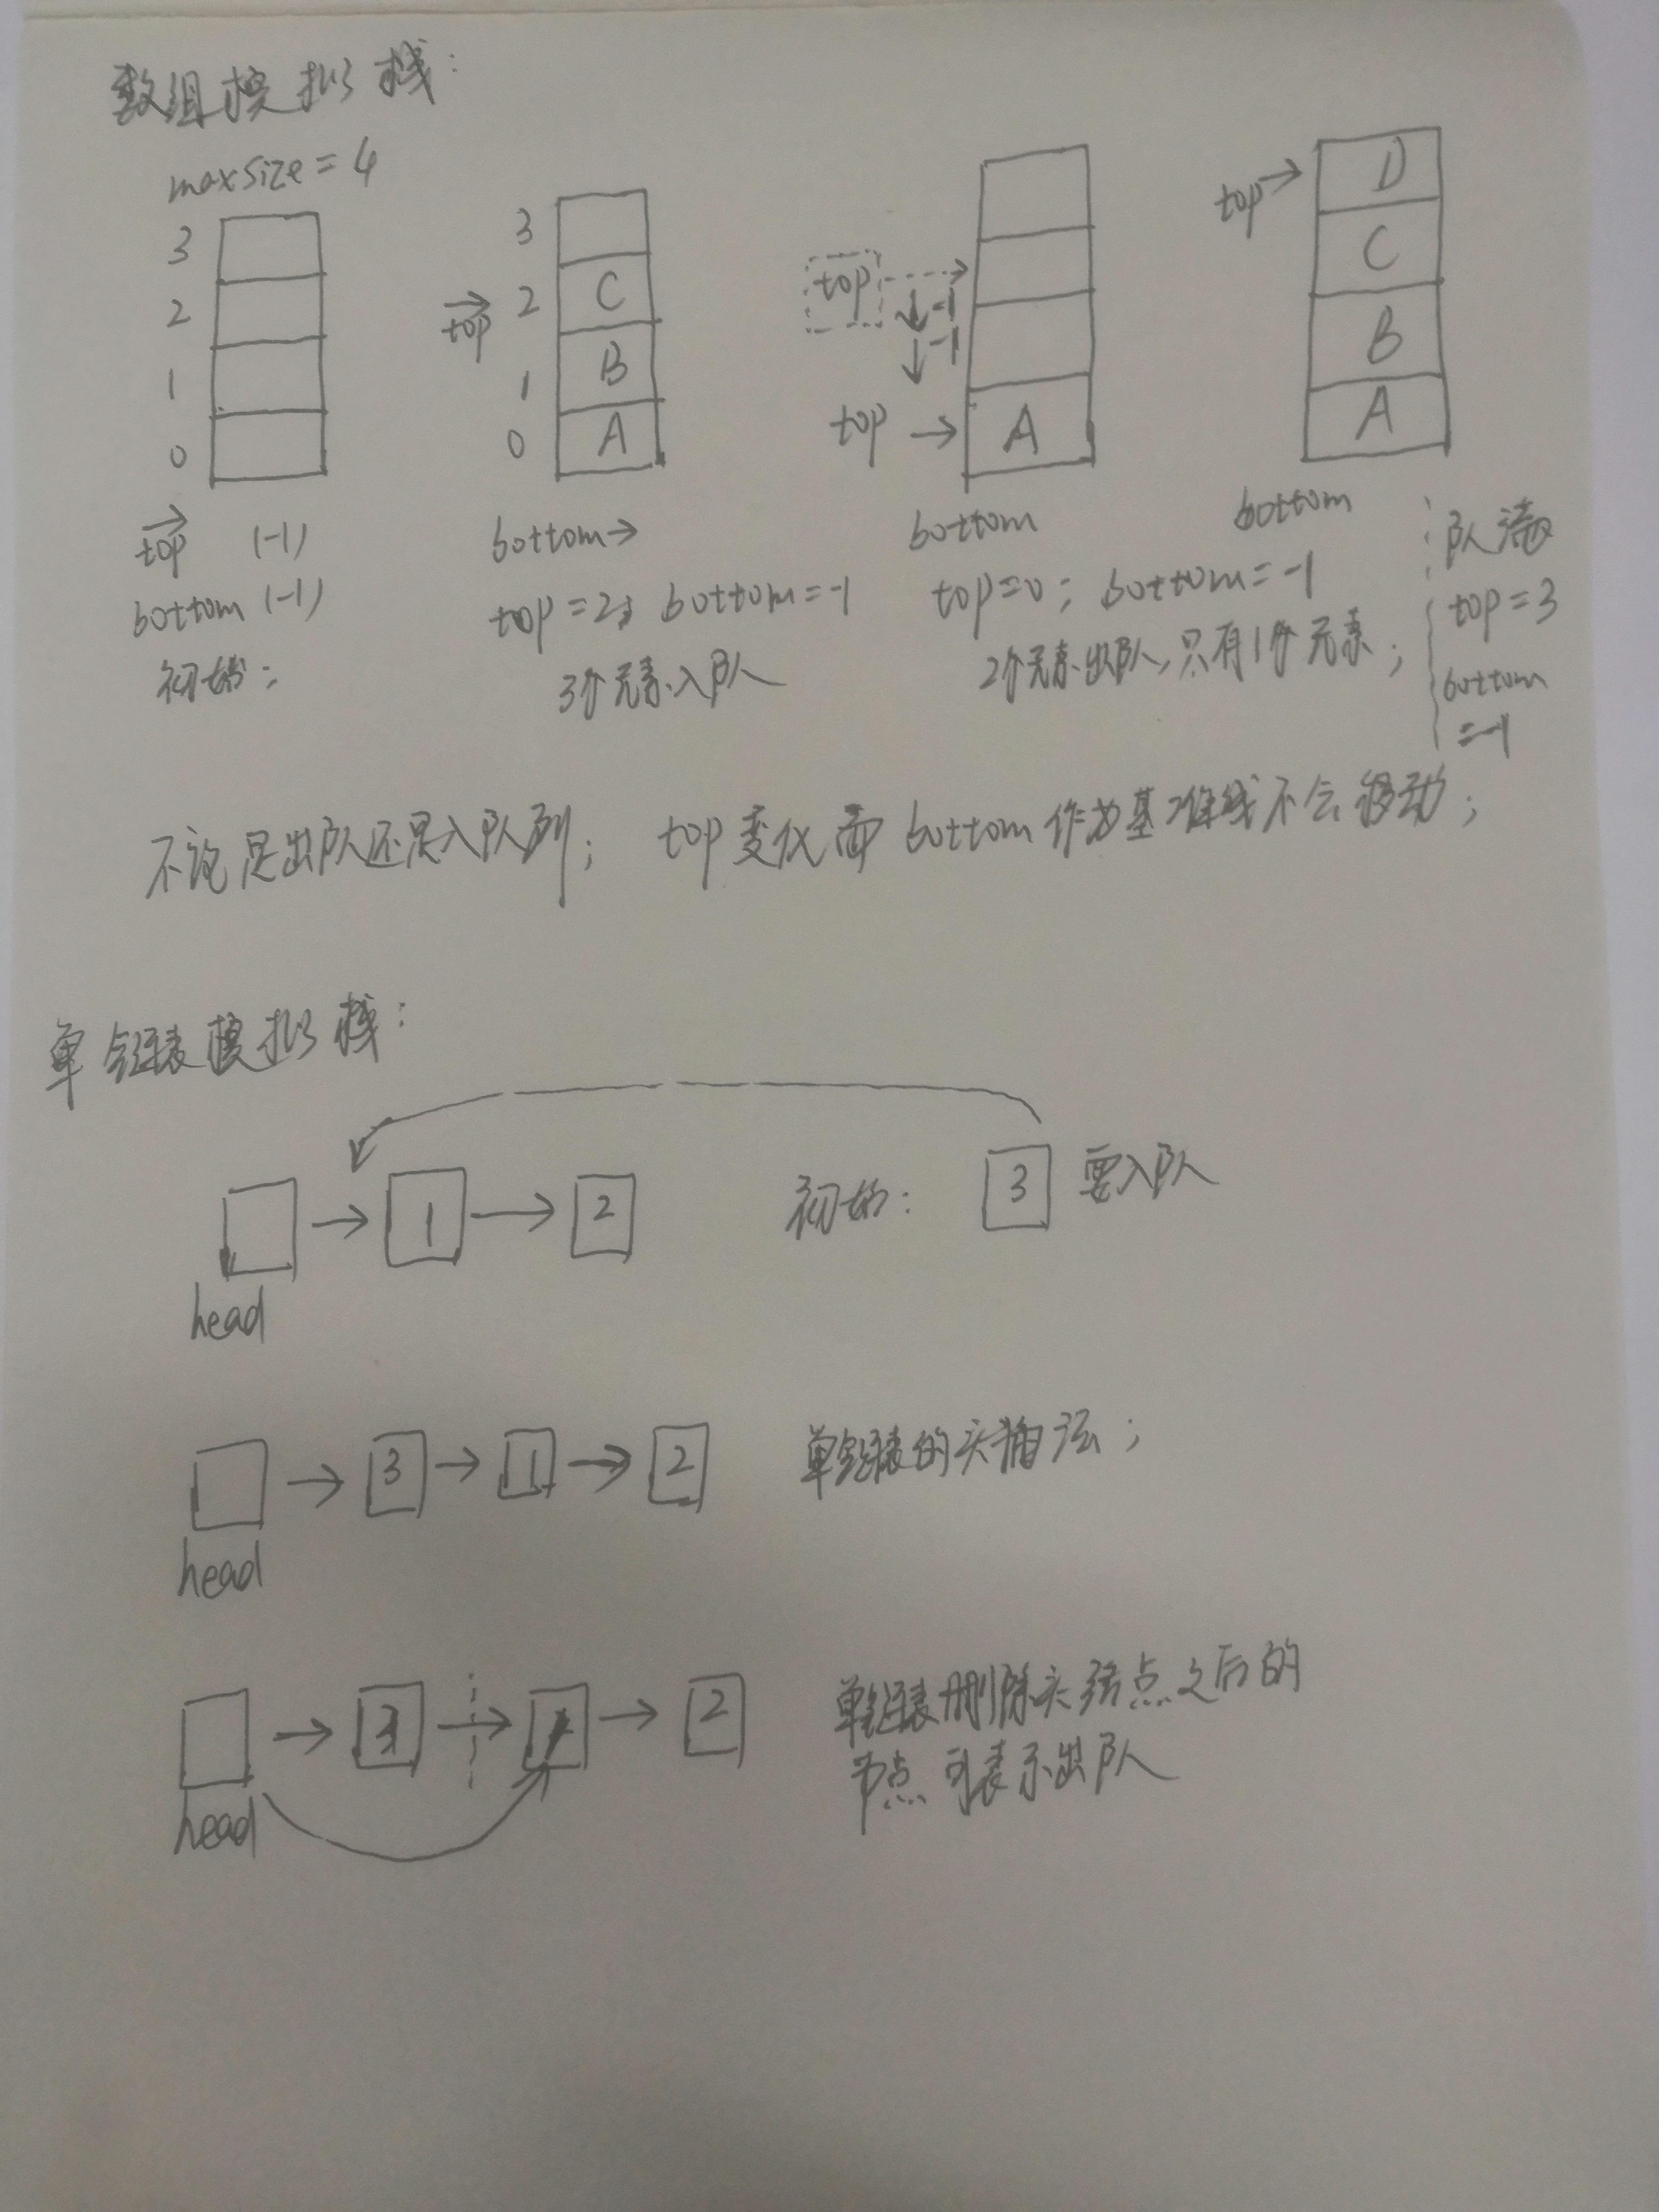 数组模拟栈:
maxsize = 4
3
2
1
0
top (-1)
bottom (-1)
初始:
3
top 2 C
1 B
0 A
bottom→
top=2; bottom=-1
3个元素入队
top
-1
-1
top → A
bottom
top=0; bottom=-1
2个元素出队,只有1个元素;
top→ D
C
B
A
bottom
队满
top=3
bottom
=-1
不论是出队还是入队列; top变化而bottom作为基准线不会移动;
单链表模拟栈:
1 → 2 初始: 3 要入队
head
→ 3 → 1 → 2 单链表的头插法;
head
→ 3 → 1 → 2 单链表删除头结点之后的
节点可表示出队
head